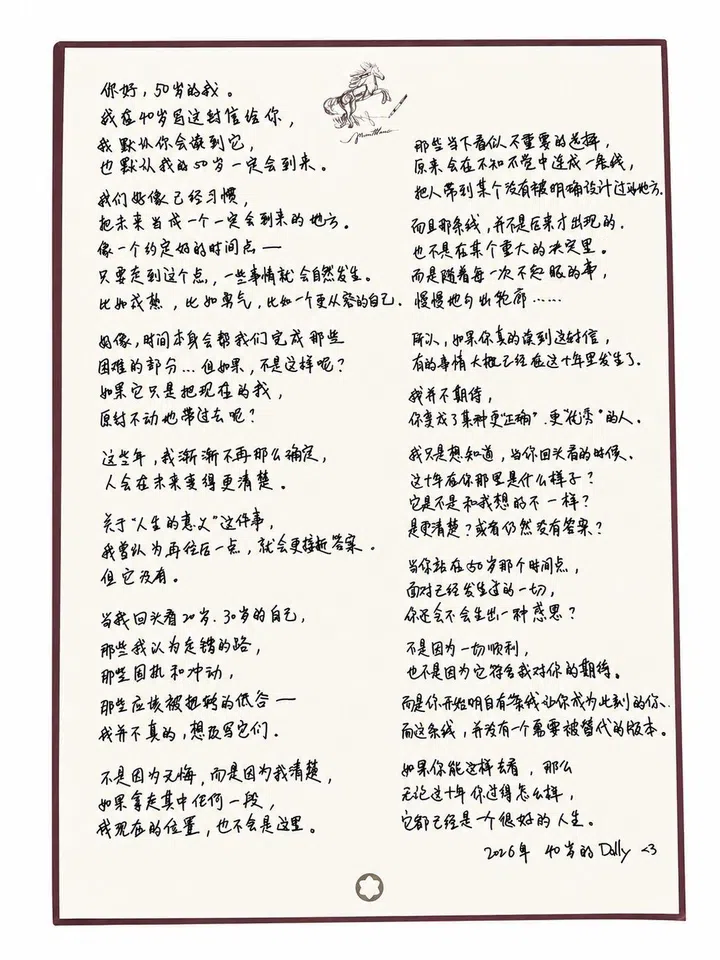 你好，50岁的我。
我在40岁写这封信给你，
我默认你会读到它，
也默认我的50岁一定会到来。
我们好像已经习惯，
把未来当成一个一定会到来的地方。
像一个约定好的时间点——
只要走到这个点，一些事情就会自然发生。
比如成熟，比如勇气，比如一个更从容的自己。
好像，时间本身会帮我们完成那些
困难的部分...但如果，不是这样呢？
如果它只是把现在的我，
原封不动地带过去呢？
这些年，我渐渐不再那么确定，
人会在未来变得更清楚。
关于“人生的意义”这件事，
我曾认为再往后一点，就会更接近答案。
但它没有。
当我回头看20岁、30岁的自己，
那些我认为走错的路，
那些固执和冲动，
那些应该被扭转的低谷——
我并不真的，想改写它们。
不是因为无悔，而是因为我清楚，
如果拿走其中任何一段，
我现在的位置，也不会是这里。
那些当下看似不重要的选择，
原来会在不知不觉中连成一条线，
把人带到某个没有被明确设计过的地方。
而且那条线，并不是后来才出现的，
也不是在某个重大的决定里。
而是随着每一次不起眼的事，
慢慢地勾出轮廓……
所以，如果你真的读到这封信，
有的事情大概已经在这十年里发生了。
我并不期待，
你变成了某种更“正确”、更“优秀”的人。
我只是想知道，当你回头看的时候，
这十年在你那里是什么样子？
它是不是和我想的不一样？
是更清楚？或者仍然没有答案？
当你站在50岁那个时间点，
面对已经发生过的一切，
你还会不会生出一种感恩？
不是因为一切顺利，
也不是因为它符合我对你的期待。
而是你开始明白有条线让你成为此刻的你，
而这条线，并没有一个需要被替代的版本。
如果你能这样去看，那么
无论这十年你过得怎么样，
它都已经是一个很好的人生。
2026年 40岁的Dally <3